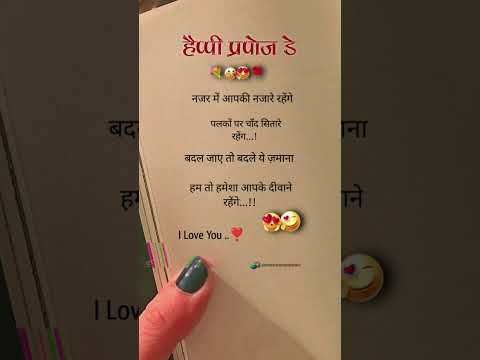 हैप्पी प्रपोज डे
नजर में आपकी नजारे रहेंगे
पलकों पर चाँद सितारे
रहेंग...!
बदल जाए तो बदले ये ज़माना
हम तो हमेशा आपके दीवाने
रहेंगे...!!
I Love You ..
I Love You ..